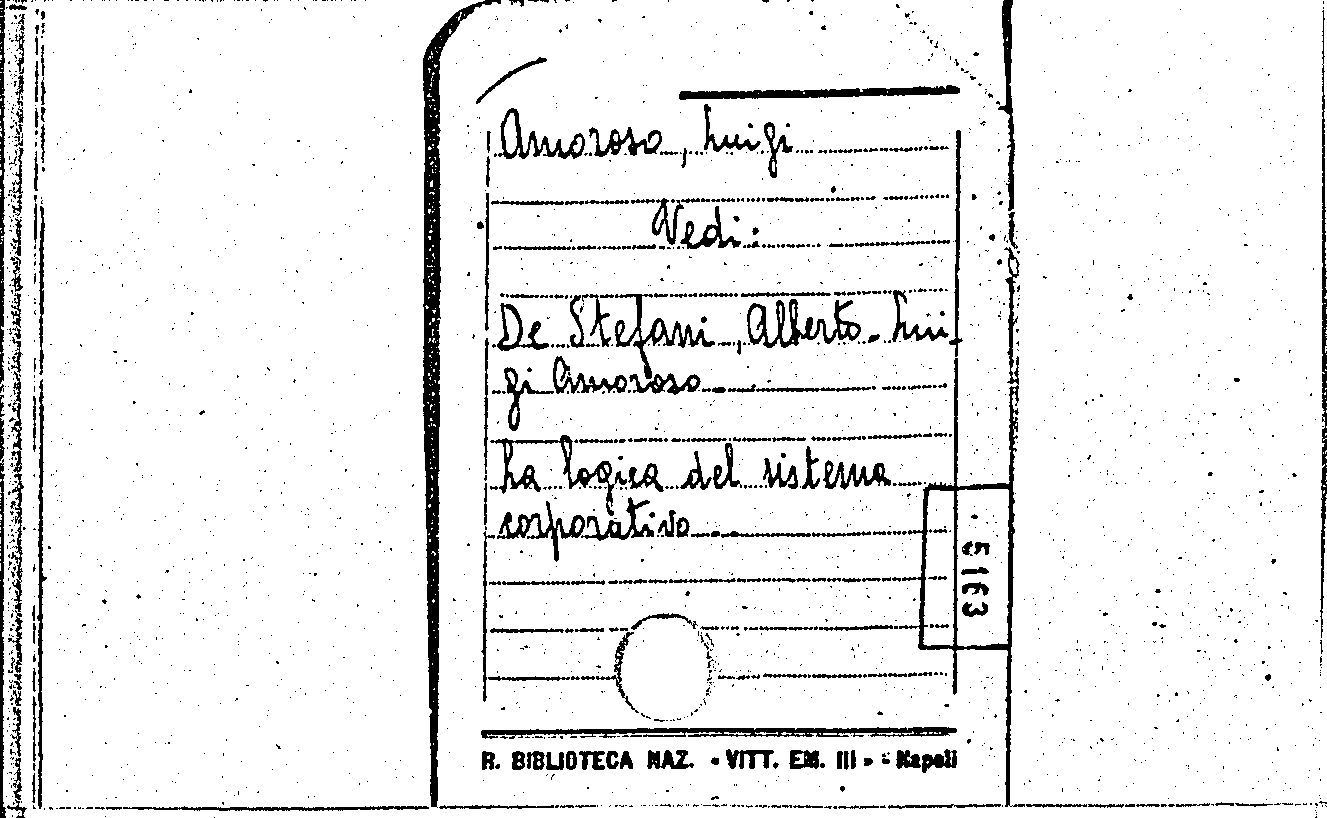 Amoroso, Luigi
Vedi:
De Stefani, Alberto - Lui-
gi Amoroso.
La logica del sistema
corporativo
5163
R. BIBLIOTECA NAZ. « VITT. EM. III » - Napoli